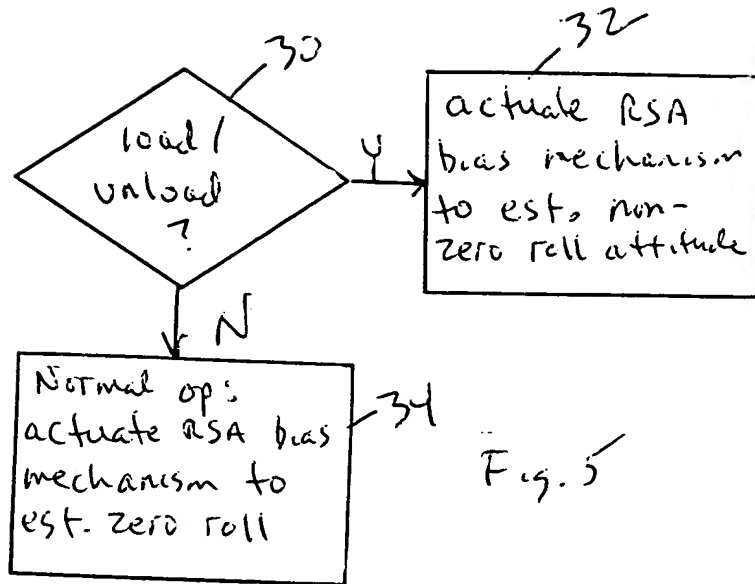 30
load/
unload
?
Y
32
actuate RSA
bias mechanism
to est. non-
zero roll attitude
N
34
Normal op:
actuate RSA bias
mechanism to
est. zero roll
Fig. 5